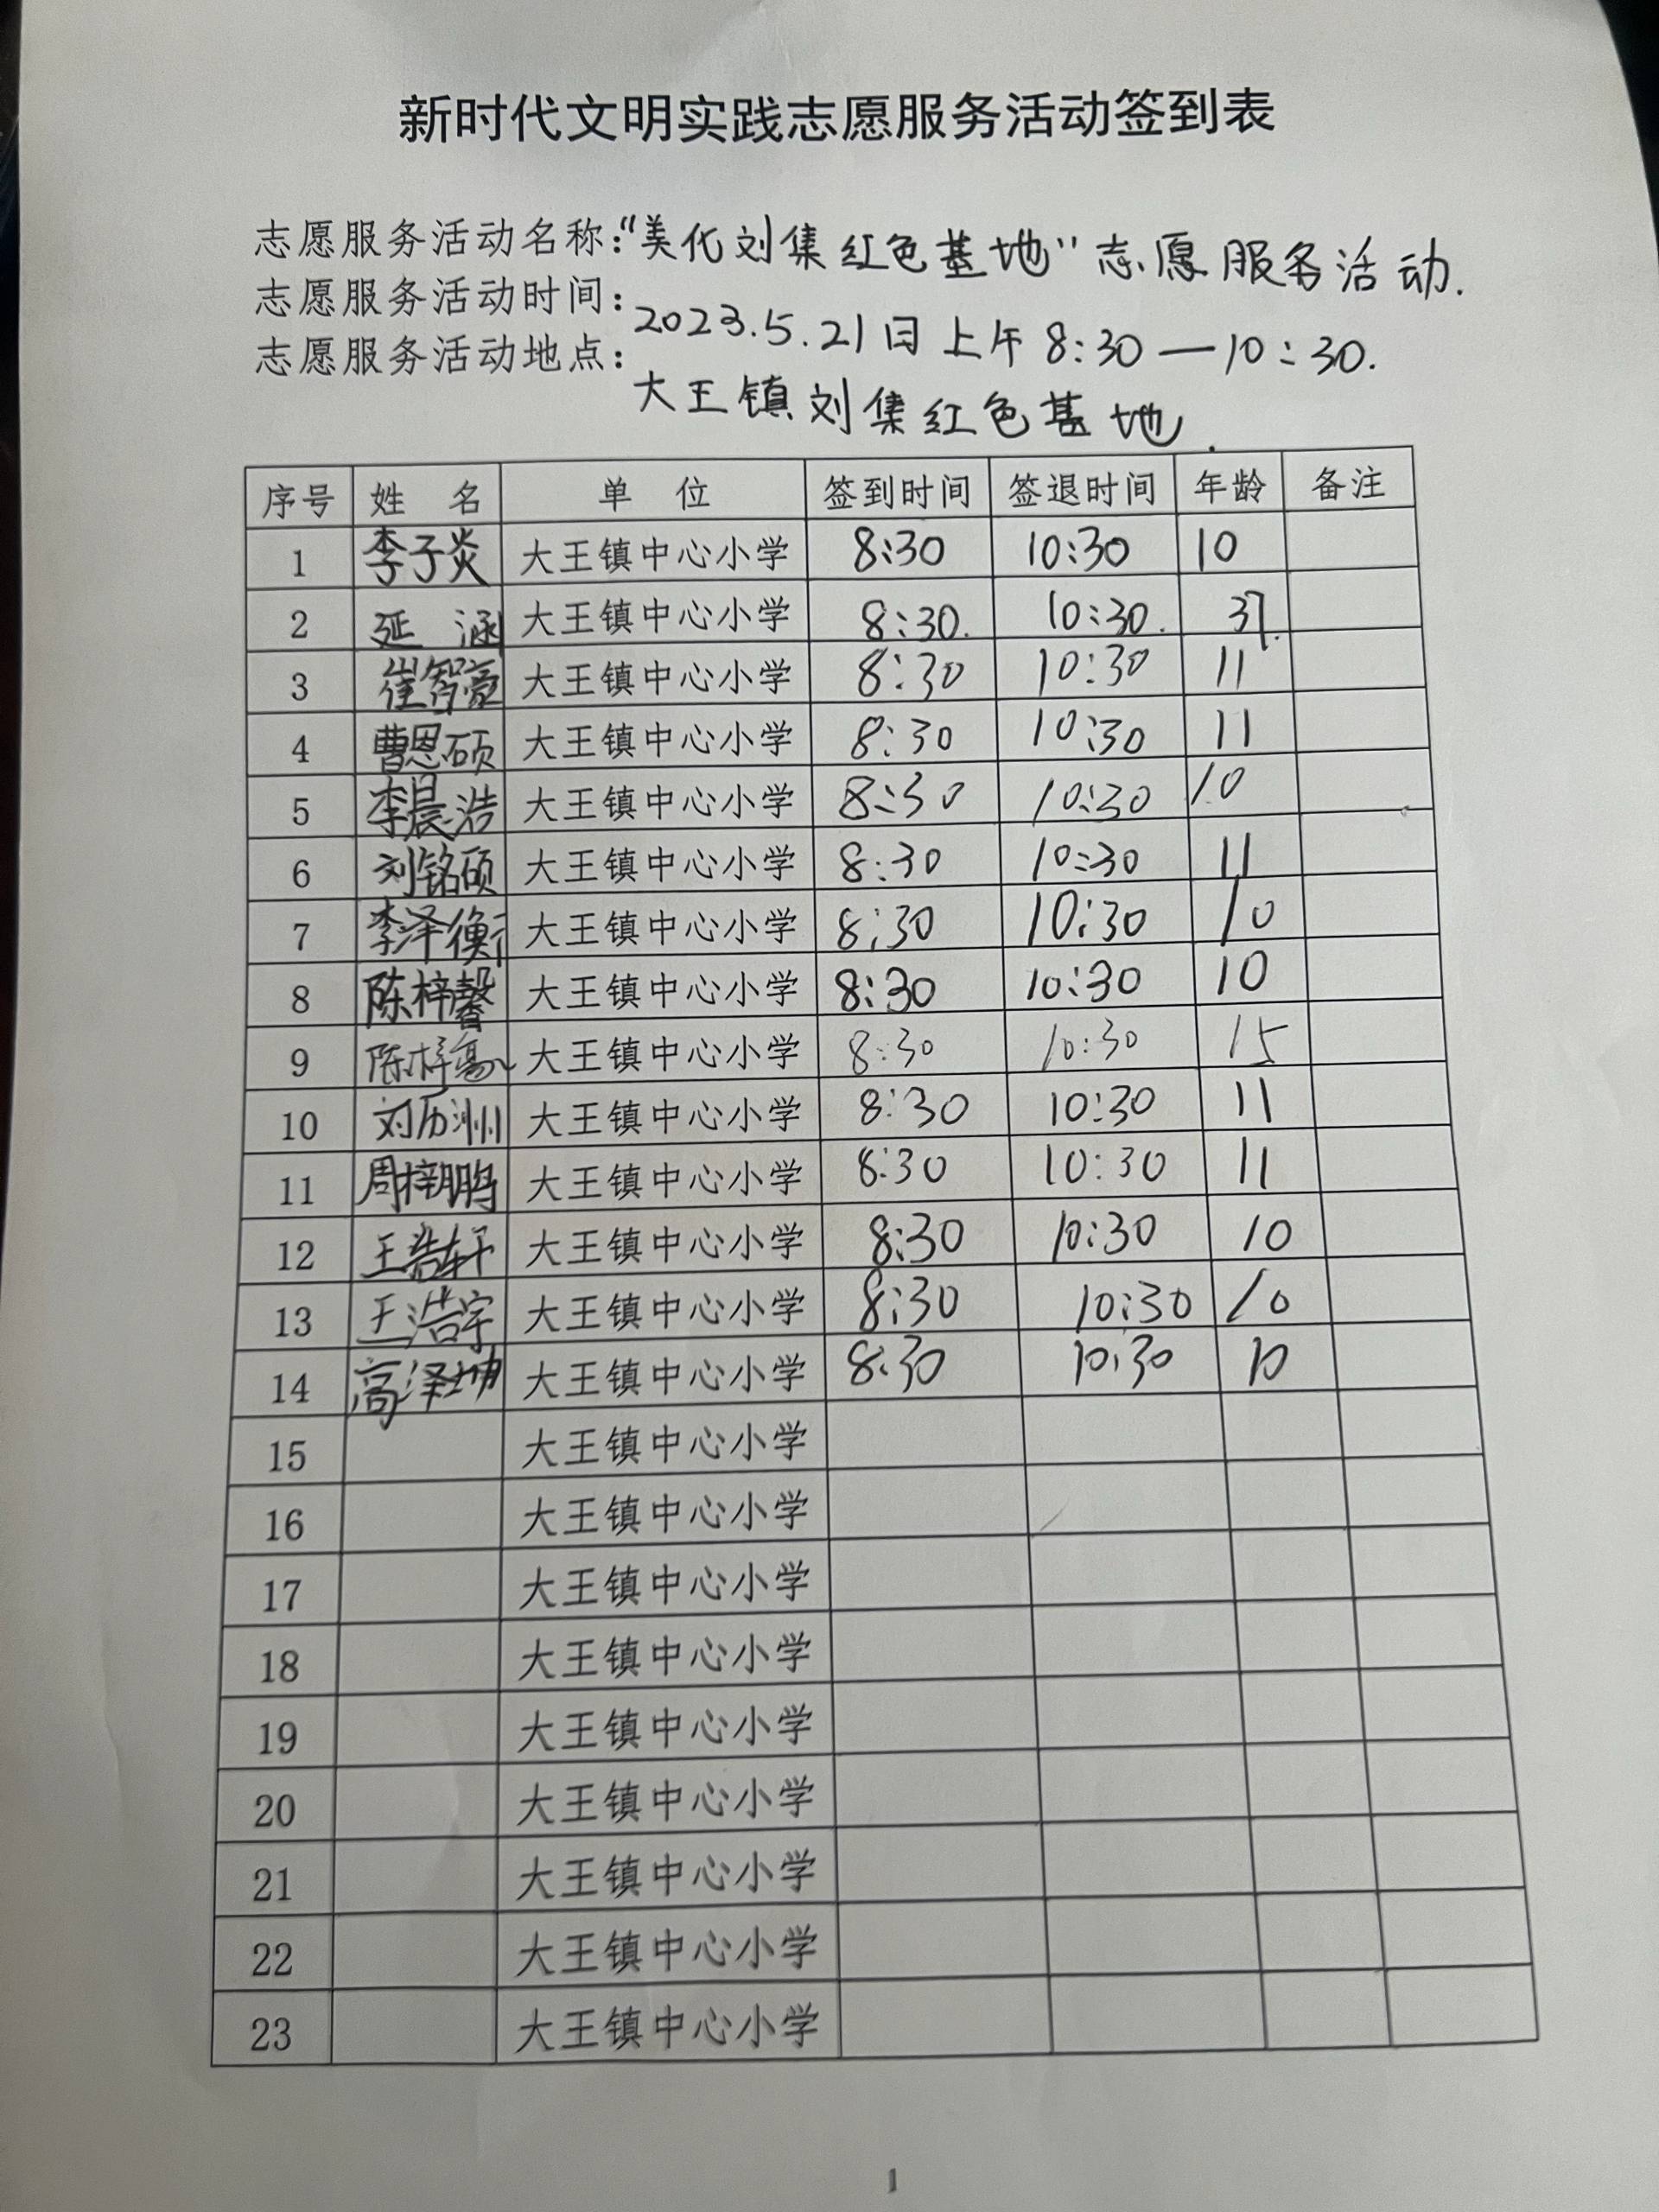 新时代文明实践志愿服务活动签到表
志愿服务活动名称:“美化刘集红色基地”志愿服务活动.
志愿服务活动时间: 2023.5.21日上午8:30—10:30.
志愿服务活动地点: 大王镇刘集红色基地.
序号 姓 名 单 位 签到时间 签退时间 年龄 备注
1 李子炎 大王镇中心小学 8:30 10:30 10
2 延 涵 大王镇中心小学 8:30. 10:30. 37.
3 崔智豪 大王镇中心小学 8:30 10:30 11
4 曹恩硕 大王镇中心小学 8:30 10:30 11
5 李晨浩 大王镇中心小学 8:30 10:30 10
6 刘铭硕 大王镇中心小学 8:30 10:30 11
7 李泽衡 大王镇中心小学 8:30 10:30 10
8 陈梓馨 大王镇中心小学 8:30 10:30 10
9 陈梓 大王镇中心小学 8:30 10:30 15
10 刘历洲 大王镇中心小学 8:30 10:30 11
11 周梓鹏 大王镇中心小学 8:30 10:30 11
12 王浩轩 大王镇中心小学 8:30 10:30 10
13 王浩宇 大王镇中心小学 8:30 10:30 10
14 高泽坤 大王镇中心小学 8:30 10:30 10
15 大王镇中心小学
16 大王镇中心小学
17 大王镇中心小学
18 大王镇中心小学
19 大王镇中心小学
20 大王镇中心小学
21 大王镇中心小学
22 大王镇中心小学
23 大王镇中心小学
1